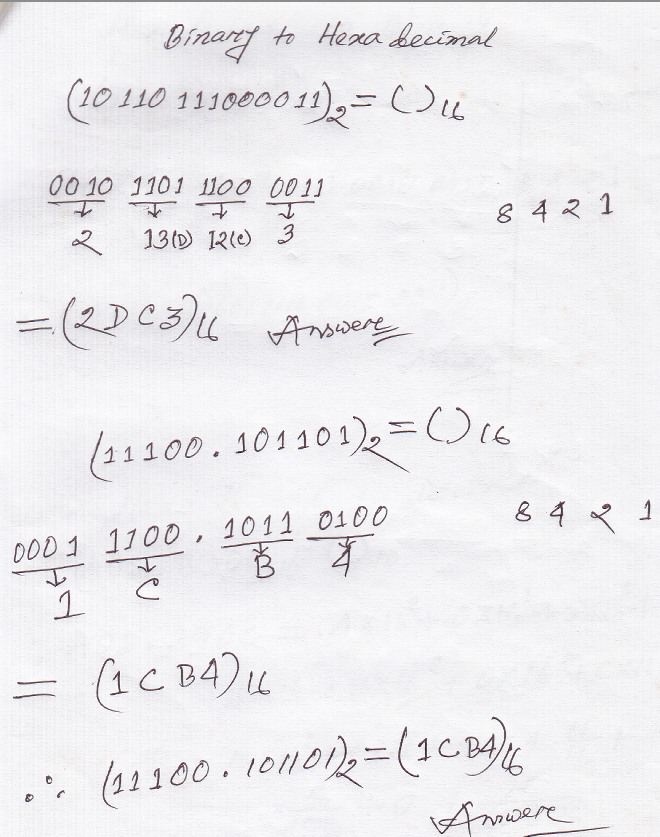 Binary to Hexa decimal
(10110111000011)₂ = ( )₁₆
0010 1101 1100 0011 8 4 2 1
2 13(D) 12(C) 3
= (2DC3)₁₆ Answere
(11100.101101)₂ = ( )₁₆
0001 1100 . 1011 0100 8 4 2 1
1 C B 4
= (1CB4)₁₆
∴ (11100.101101)₂ = (1CB4)₁₆
Answere